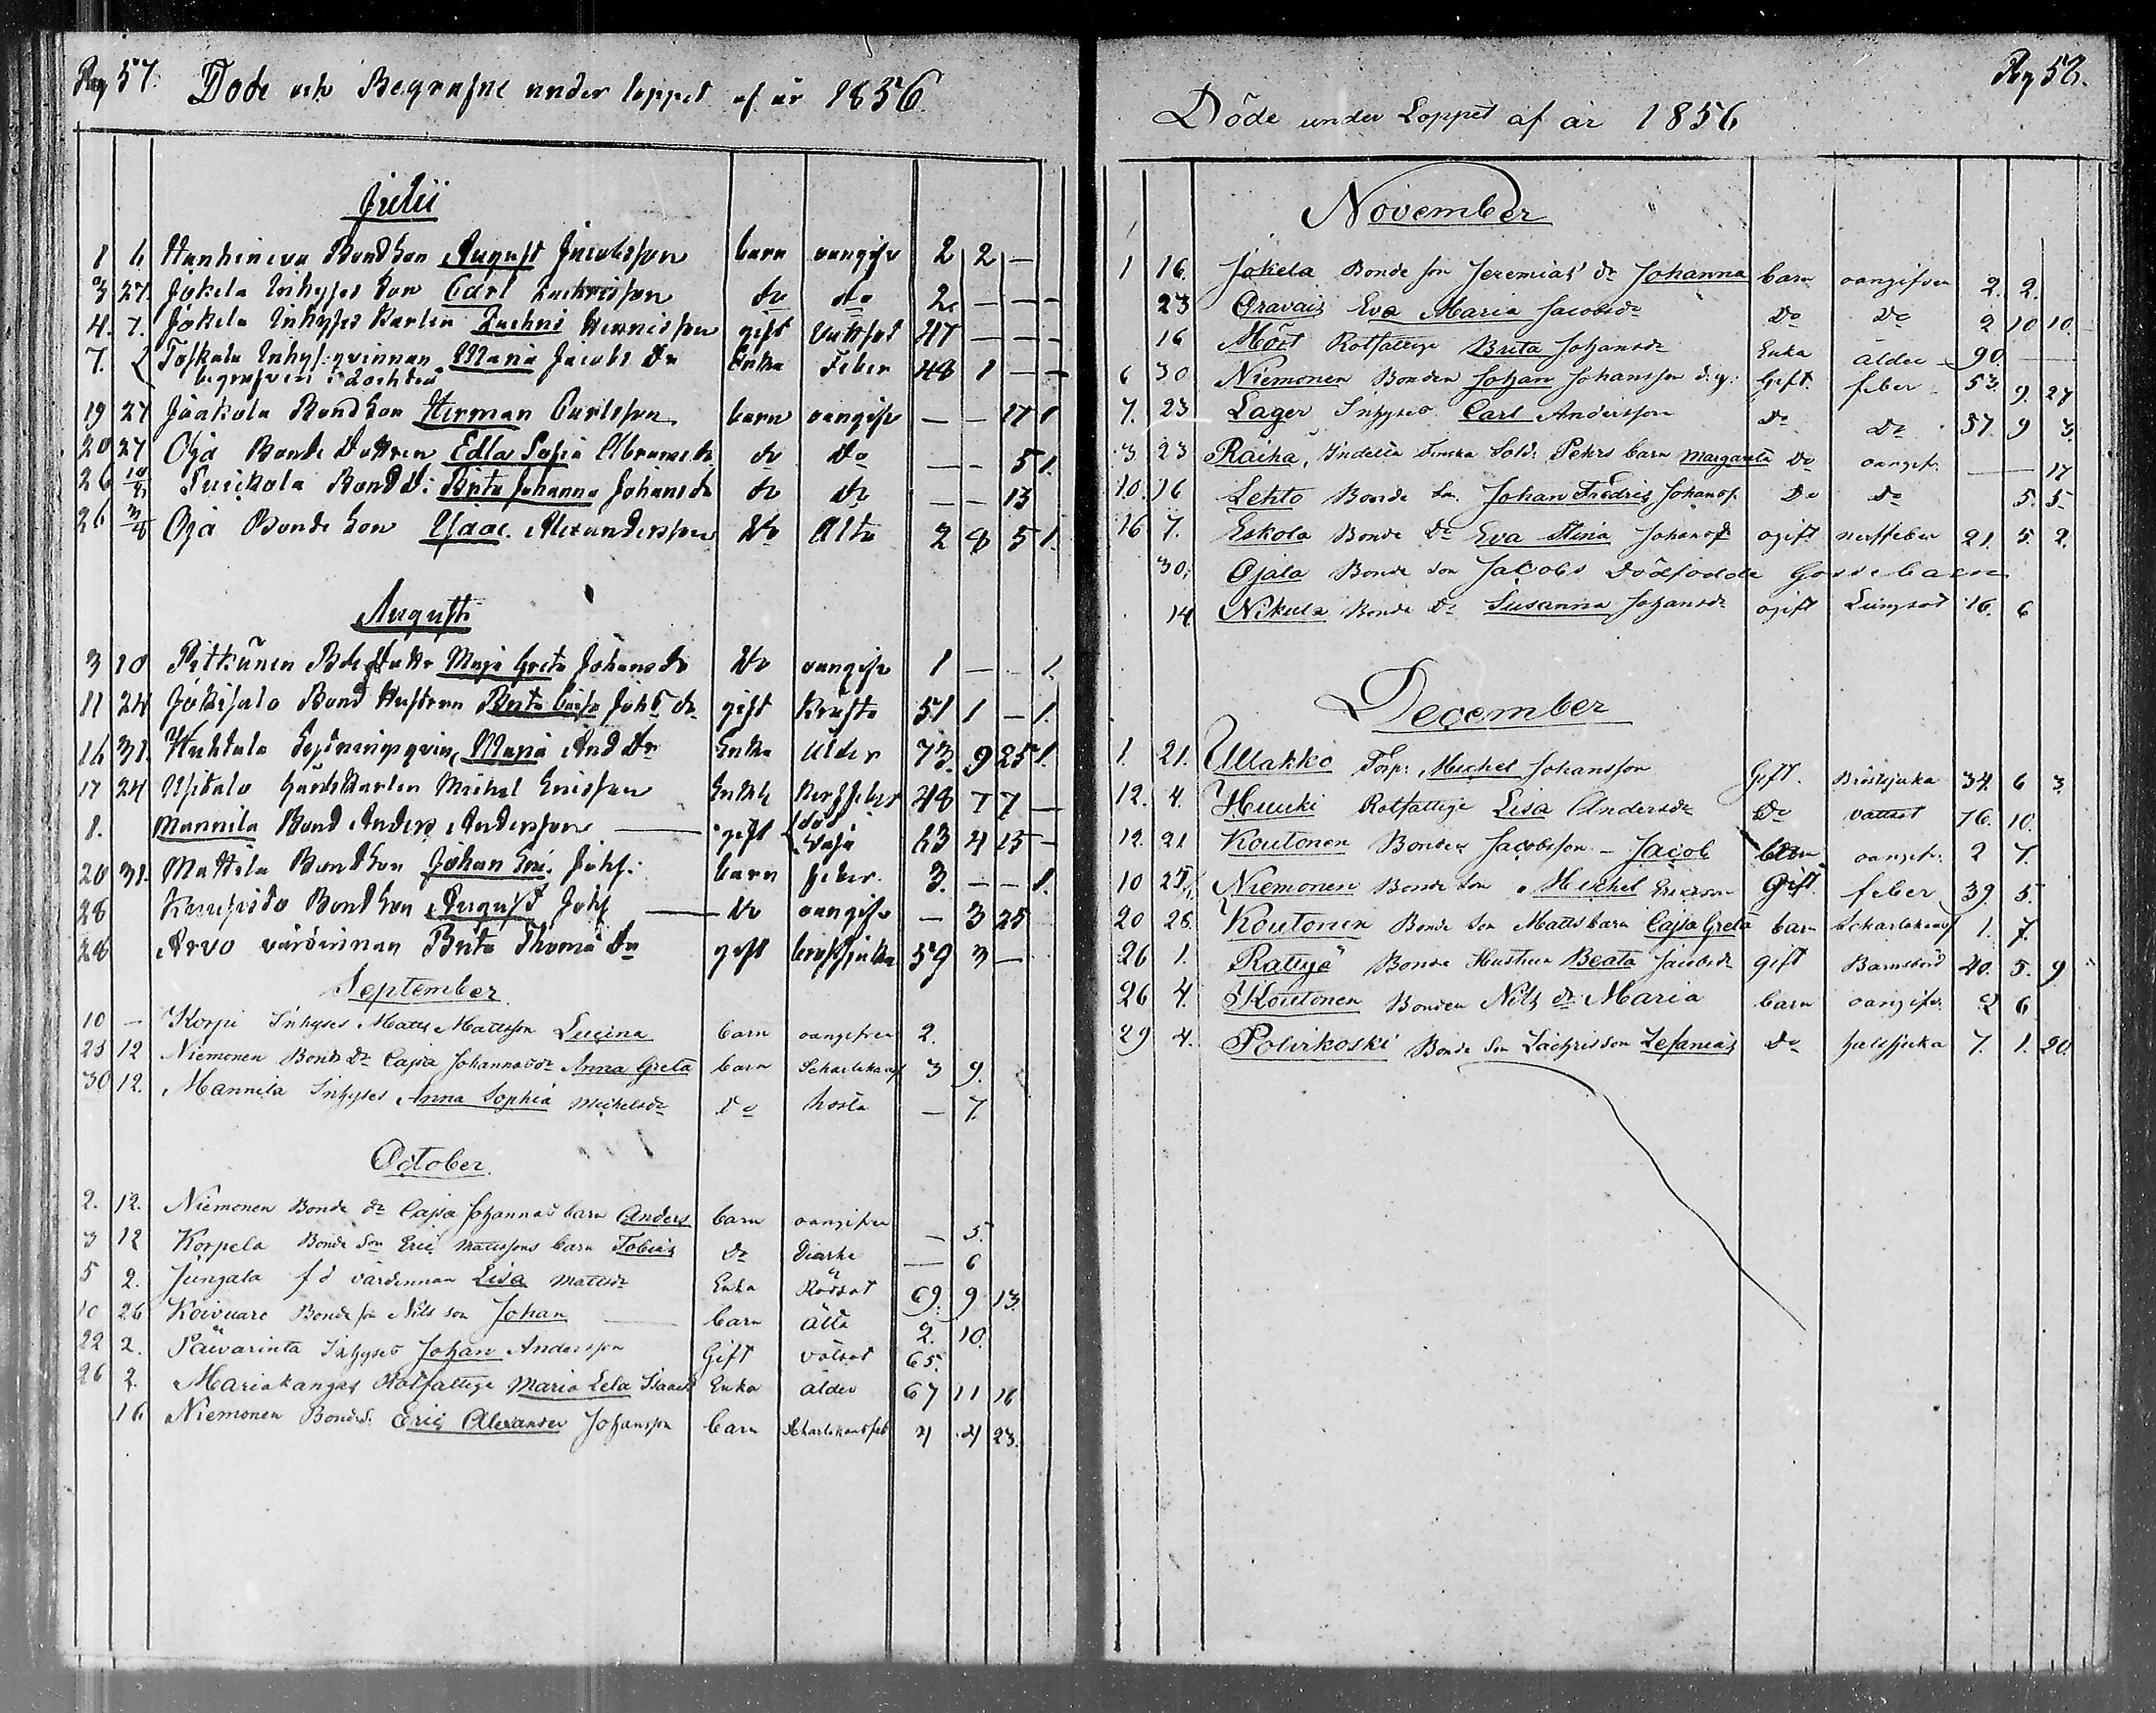 Pag 57.
Döde och Begrafne under loppet af år 1856.
Julii
1 6 Hanhineva Bond Son August Jacobsson barn oangifv 2 2 —
3 27. Jokela Inhyses Son Carl Zachrisson do do 2. — —
4. 7. Jokela Inhyses Karlen Zachris Hermisson gift Vattsot 47 — — —
7. Toskala Inhys. qvinnan Maria Jacobs dr Enka Feber 48 1 — —
begrafven i Lochteå
19 27 Jäakola Bond Son Herman Carlsson barn oangifv — — 17 1
20 27 Oja Bonde Dottren Edla Sofia Abramsdr do Do — — 5 1.
26 10/8 Bond D: Brita Johanna Johansdr do do — — 13
26 3/8 Oja Bonde Son Isaac. Alexandersson Do Alta 2 8 5 1.
Augusti
3 10 Pitkänen Maja Greta Johansdr Do oangifv 1 — — 1.
11 24 Jokisalo Bond Hustrun Brita Caisa Joh. dr gift Kräfta 51 1 — 1.
16 31. Huhtala Maria And. dr Enka Ålder 73. 9 25 1.
17 24 Ypitalo Michel Ericsson Enkl. 48 7 7 —
1. Mannila Bond Anders Andersson — gift död Wasa 23 4 15 —
20 31. Mattila Bond Son Johan Eric. Johs: barn feber. 3. — — 1.
28 Bond Son August Johs — do oangifv — 3 25
28 Arvo värdinnan Brita Thomæ dr gift bröstsjuka 59 3 —
September
10 — Korpi Inhyses Matts Mattsson Lucina barn oangifven 2.
25 12 Niemonen Bonde Dr Cajsa Johannas dr Anna Greta barn Scharlakansf 3 9.
30 12. Mannila Inhyses Anna Sophia Michelsdr Do hosta — 7.
October.
2. 12. Niemonen Bonde dr Cajsa Johannas barn Anders barn oangifven — 5.
3 12 Korpela Bonde Son Eric Mattssons barn Tobias Do Diarhe — 6
5 2. Jungala f d värdinnan Lisa Mattsdr Enka Rödsot 69. 9 13.
10 26 Koivuare Bonde son Nils son Johan — barn älta 2. 10.
22 2. Päivärinta Inhyses Johan Andersson Gift vatsot 65.
26 2. Mariakangas Rotfattige Maria Lela Isaacs Enka ålder 67 11 16
16 Niemonen Bondes. Eric Alexander Johansson barn Scharlakansfeb 4 4 23.
Pag 58.
Döde under Loppet af år 1856
November
1 16. Jokela Bonde son Jeremias' dr Johanna barn oangifven 2. 2.
23 Oravais Eva Maria Jacobsdr Do Do 2 10 10.
16 Möst Rotfattige Brita Johansdr Enka ålder 90. —
6 30 Niemonen Bonden Johan Johansson d.y: Gift. feber 53. 9. 27
7. 23 Lager Inhyses Carl Andersson Do Do 57. 9 3.
3 23 Raiha, Indelta Finska Sold. Pehrs barn Margareta Do oangifv. — 17
10. 16 Lehto Bonde Son Johan Fredric Johans. Do Do 5. 5.
16 7. Eskola Bonde Dr Eva Stina Johansdr ogift nerffeber 21. 5. 2.
30. Ojala Bonde Son Jacobs Dödfödde Gossebarn
14 Nikula Bonde Dr Susanna Johansdr ogift Lungsot 16. 6
December
1. 21. Ullakko Torp: Michel Johansson Gift. Bröstsjuka 34. 6 3.
12. 4. Huuki Rotfattige Lisa Andersdr Do vattsot 76. 10.
12. 21 Koutonen Bonden Jacobsson – Jacob barn oangifv. 2 7.
10 25/1 Niemonen Bonde Son Michel Ericsson Gift feber 39. 5.
20 26. Koutonen Bonde Son Matts barn Cajsa Greta barn Scharlakansf 1. 7.
26 1. Rattyä Bonde Hustrun Beata Jacobsdr gift Barnsbörd 40. 5. 9
26 4. Koutonen Bonden Nils dr Maria barn oangifv. 2 6
29 4. Polvikoski Bonde Son Zachrisson Zefanias do halssjuka 7. 1. 20.